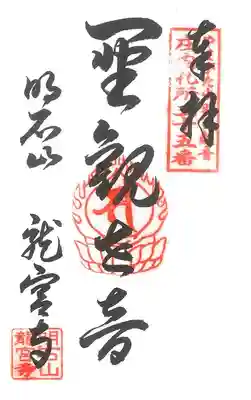 奉拝
聖観世音
明石山
龍宮寺
明石山
龍宮寺